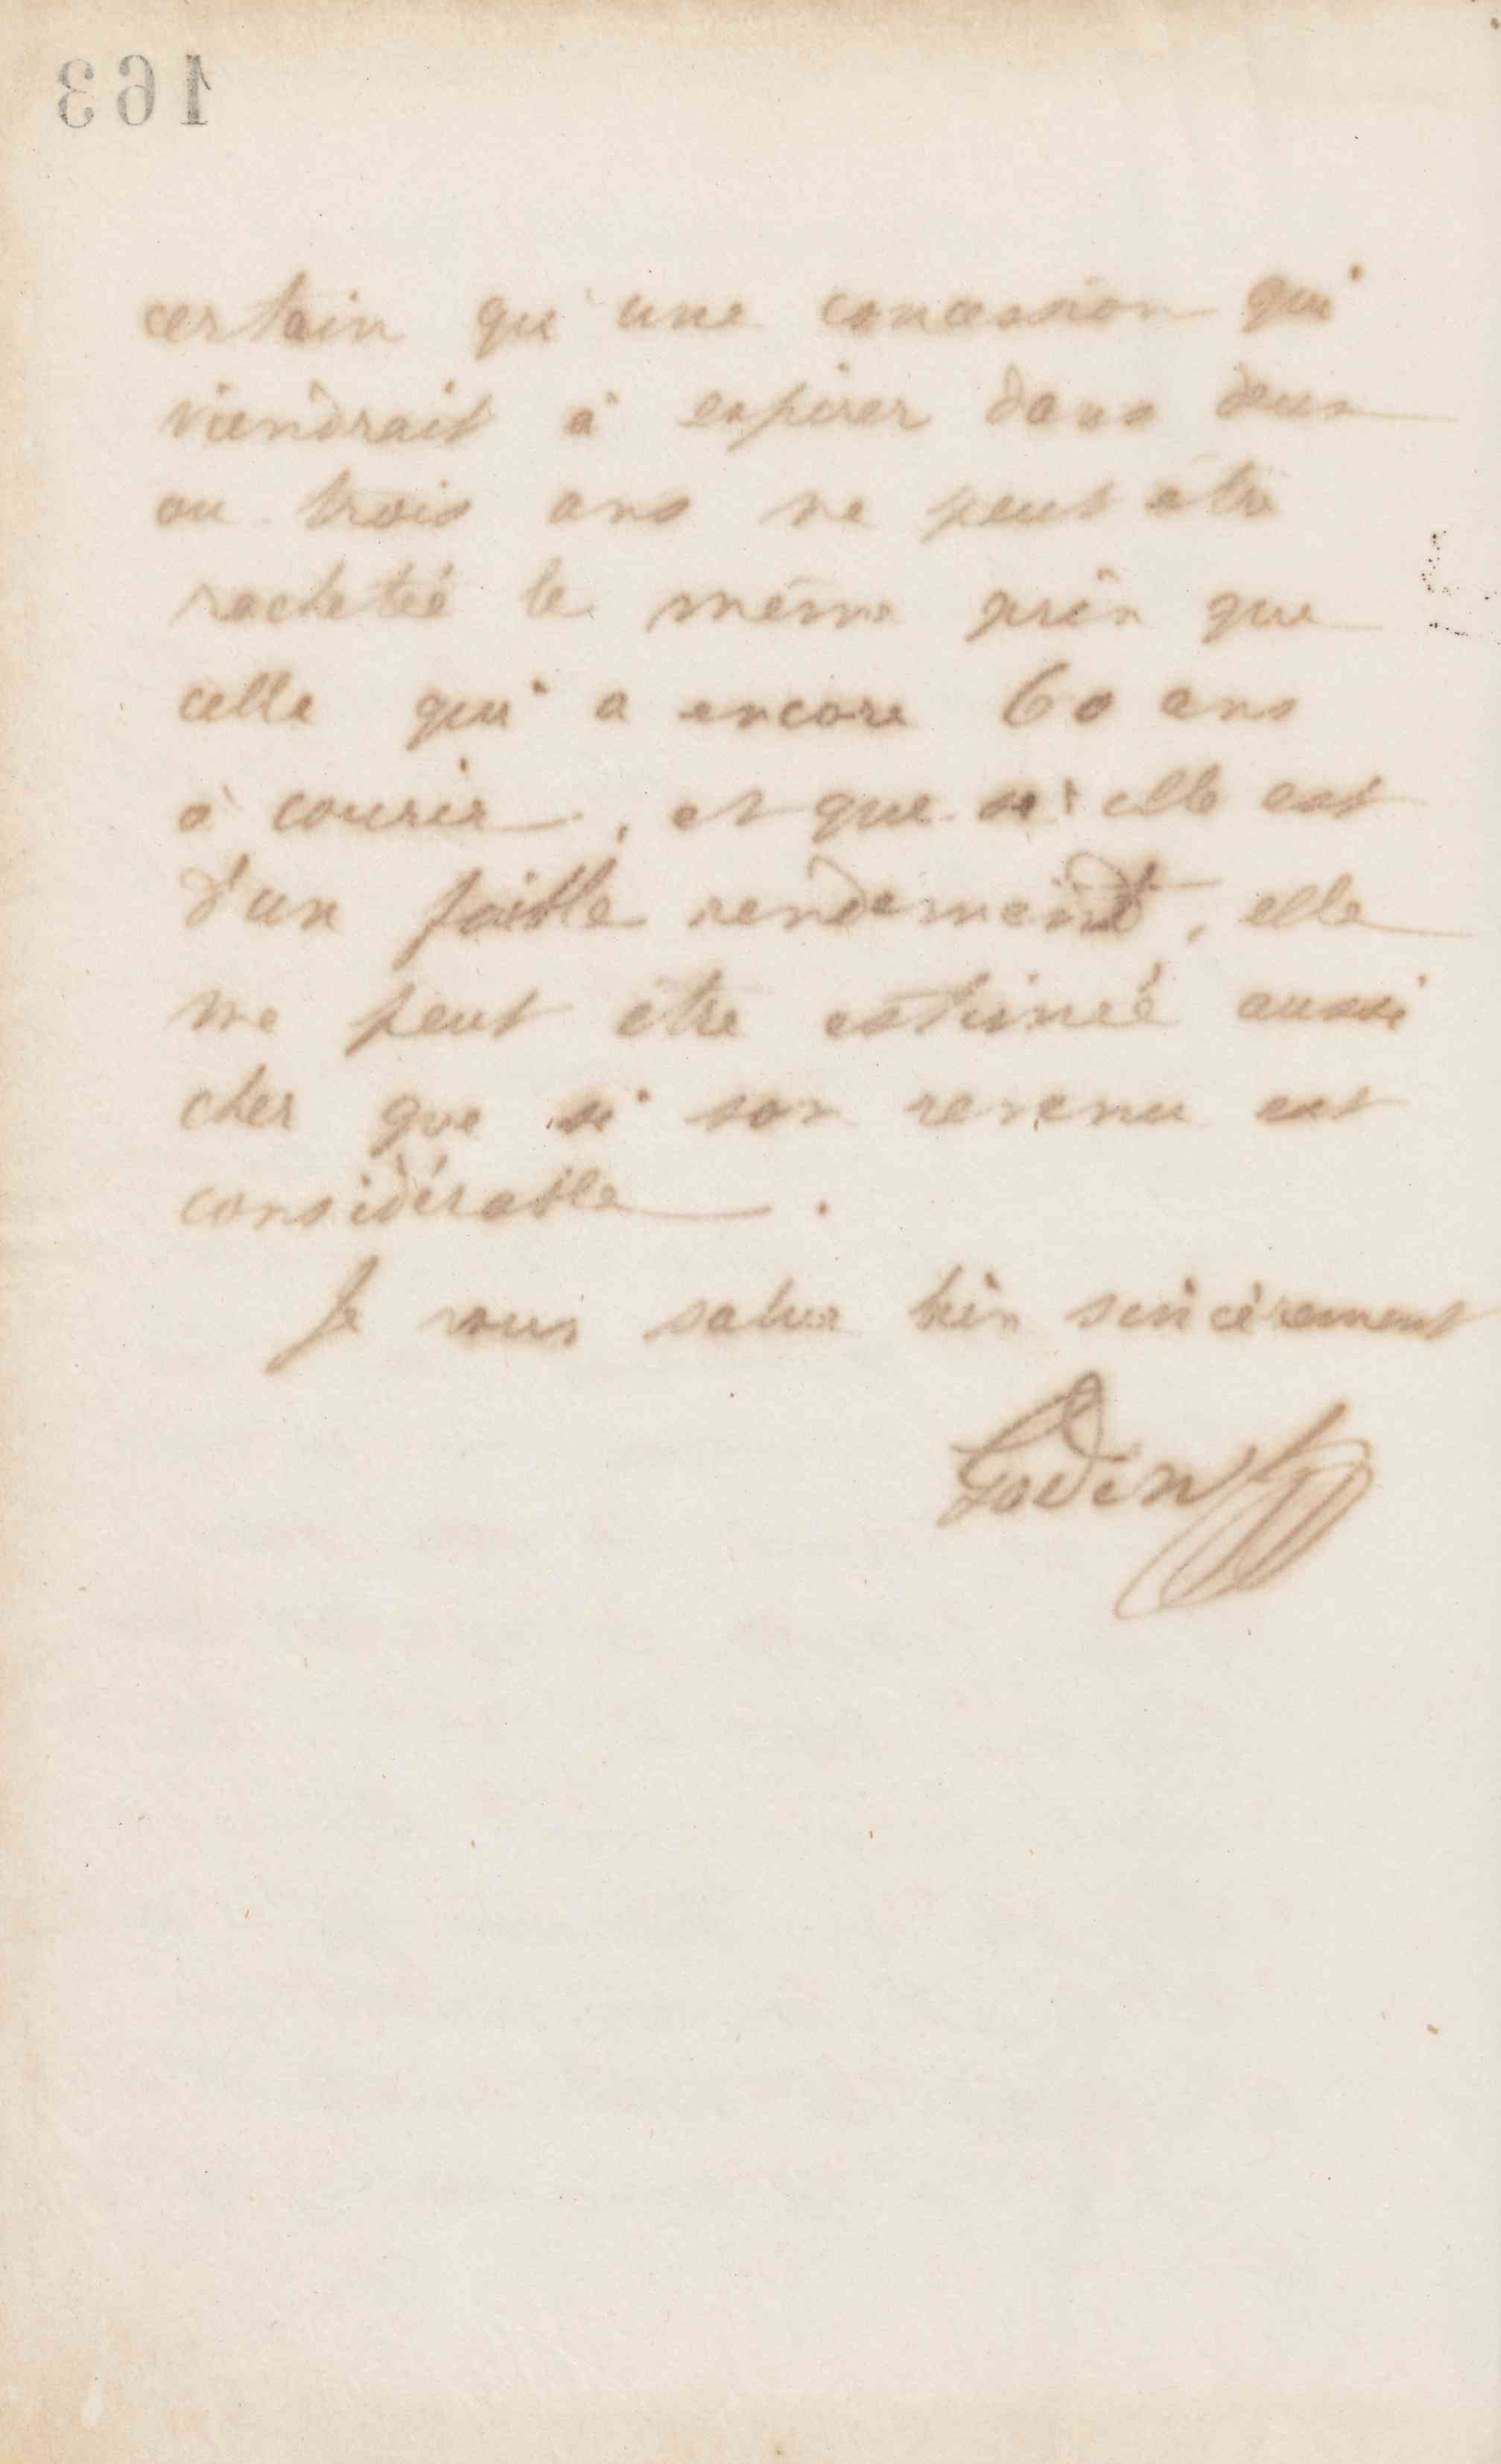 163
certain qu'une concession qui
viendrait à expirer dans deux
ou trois ans ne peut être
rachetée le même prix que
celle qui a encore 60 ans
à courir, et que si elle est
d'un faible rendement, elle
ne peut être estimée aussi
cher que si son revenu est
considérable.
Je vous salue bien sincèrement
Godin